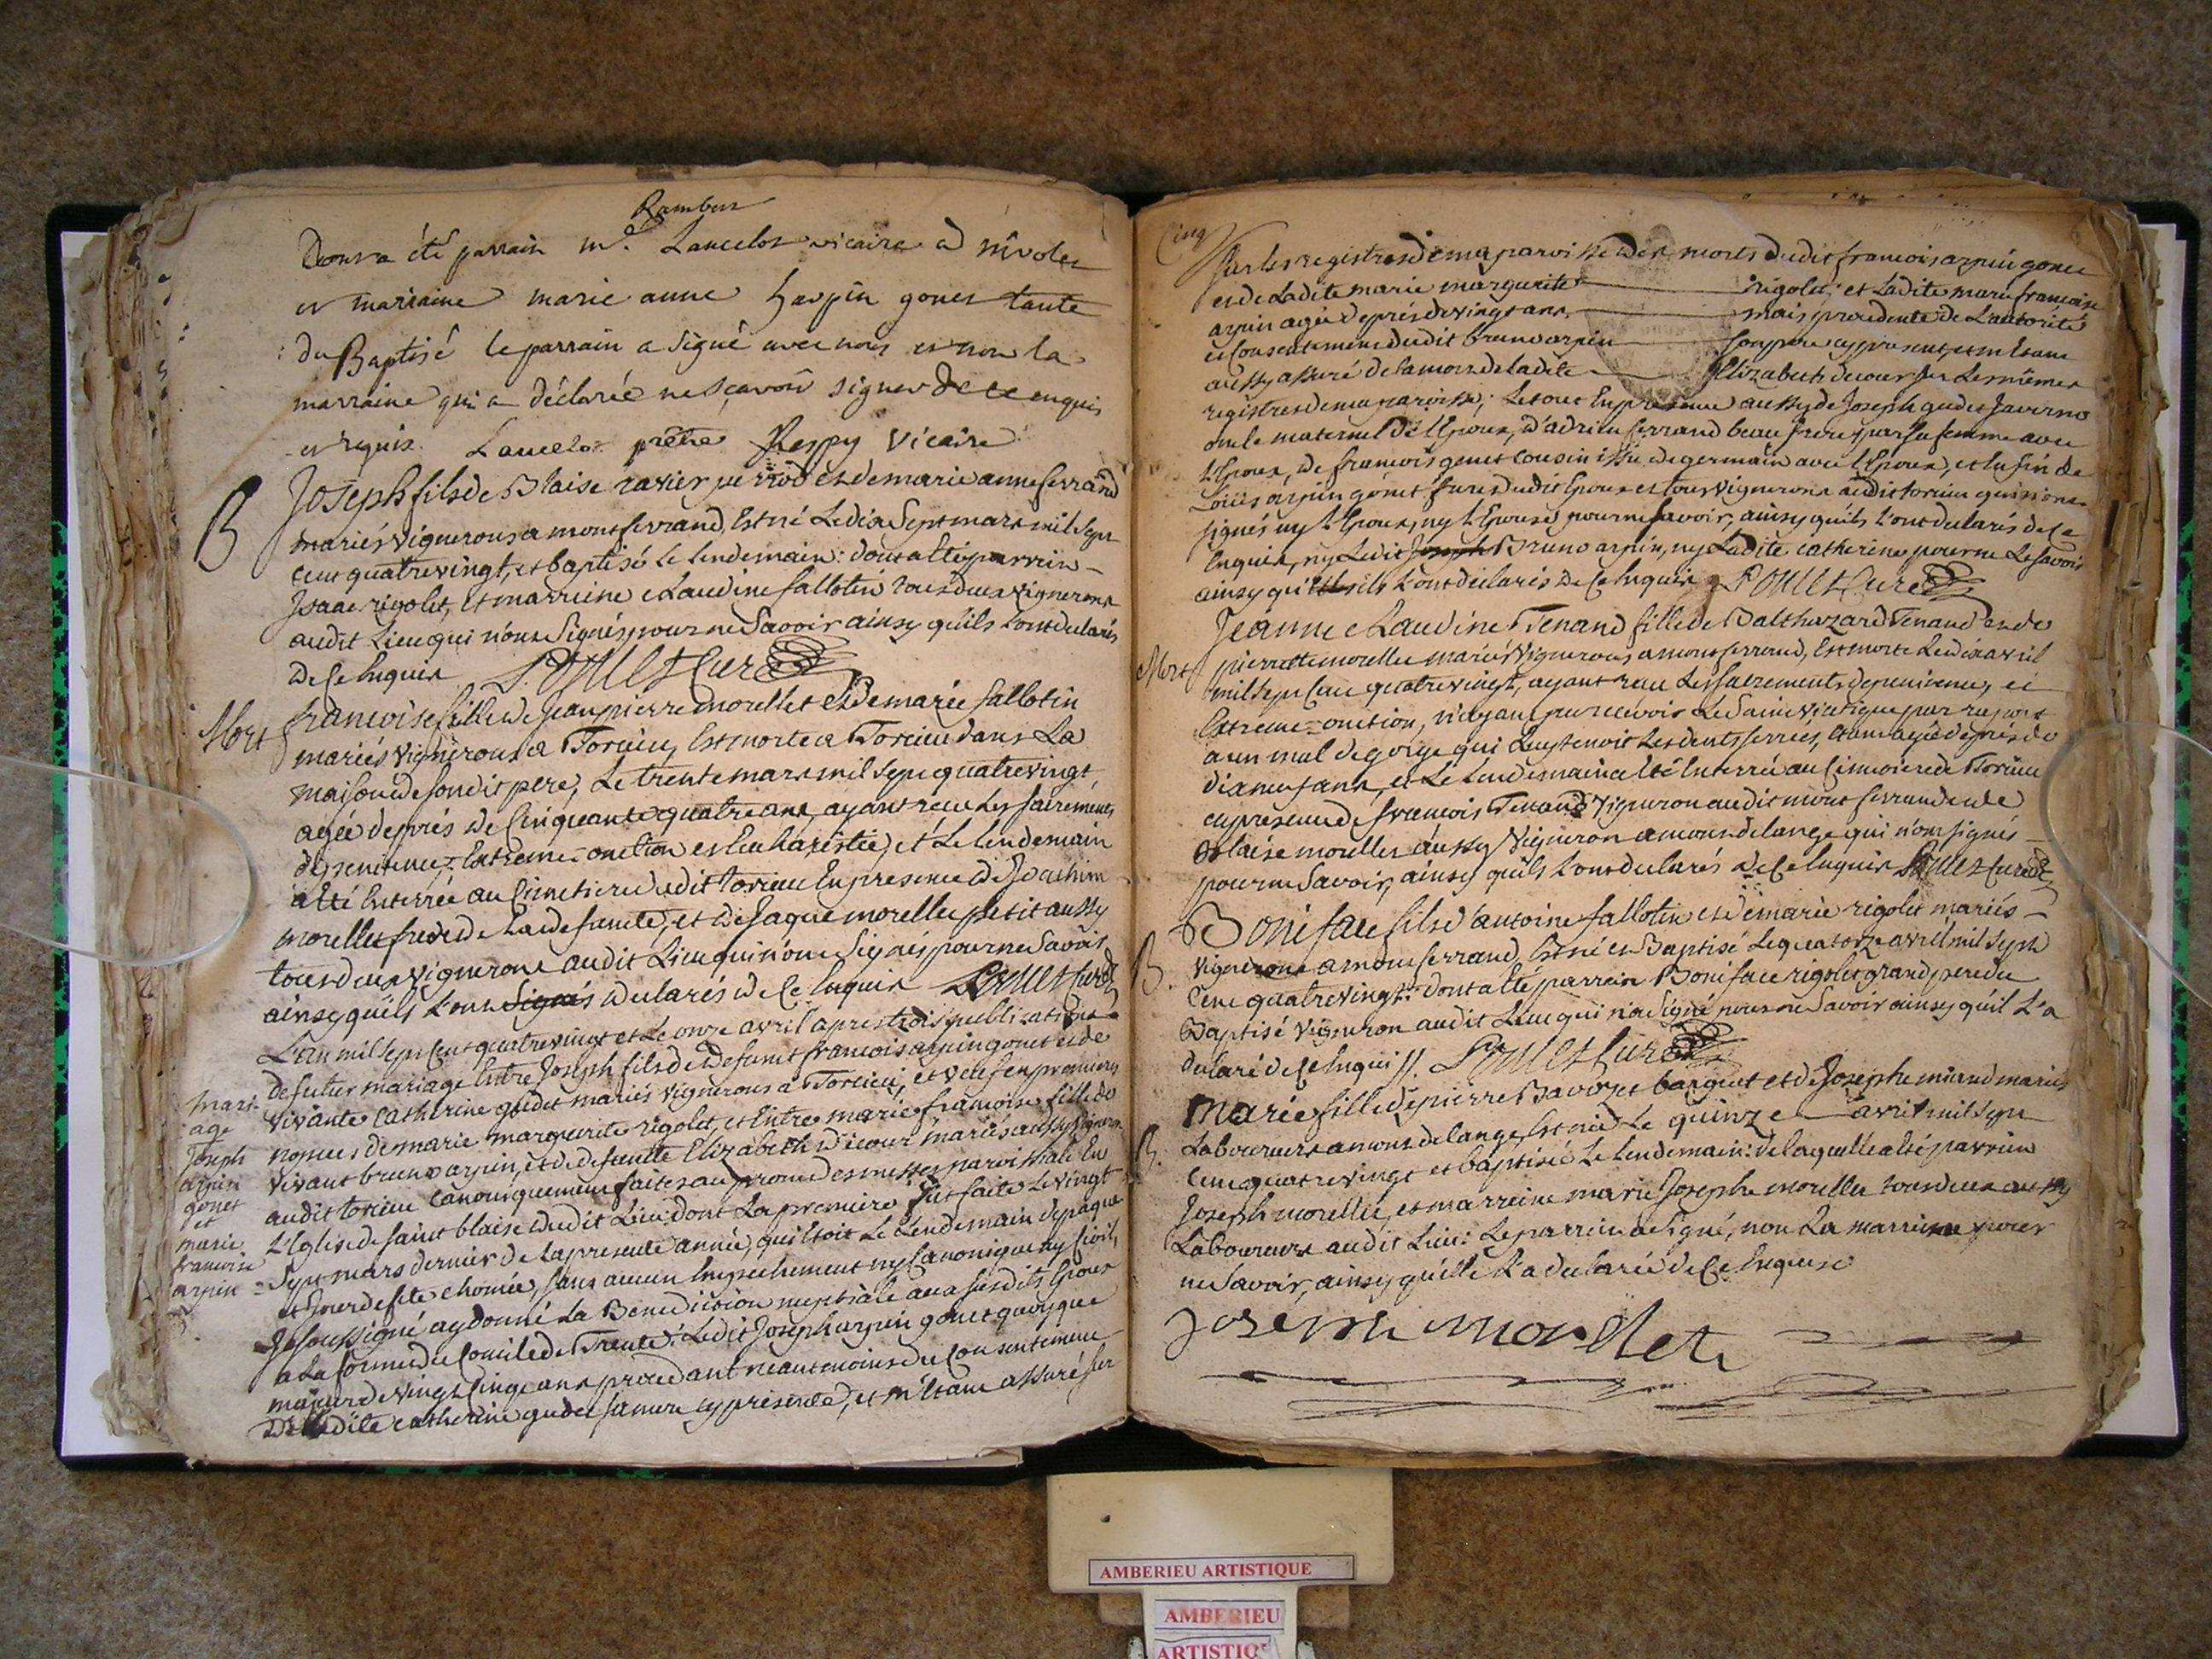 Rambert
dont a été parrain mr. Lancelot vicaire a nivolet
et marraine marie anne harpin gonet tante
du Baptisé le parrain a signé avec nous et non la
marraine qui a déclarée ne sçavoir signer de ce enquis
et requis. Lancelot prêtre Reppy vicaire
B
Joseph fils de Blaise ravier perrod et de marie anne ferrand
mariés vignerons a montferrand, Est né Le dix Sept mars mil Sept
Cent quatrevingt, et baptisé Le lendemain: dont a Eté parrein
Isaac rigolet, et marreine Claudine fallotin tous deux vignerons
audit Lieu qui n'ont Signés pour ne Savoir ainsy qu'ils L'ont declarés
de Ce Enquis Poullet Curé
Mort
francoise fille de Jean pierre morellet et de marie fallotin
mariés vignerons a Torcieu, Est morte a Torcieu dans La
maison de son dit pere, Le trente mars mil Sept quatrevingt
agée de prés de Cinquante quatre ans, ayant reçu Les Sacréments
de penitence, Extreme-onction et Eucharistie, et Le Lendemain
a Eté Enterrée au Cimetiere dudit torcieu En presence de Joachim
morellet frere de La defunte, et de Jaque morellet petit aussy
tous deux vignerons audit Lieu qui n'ont Signés pour ne Savoir
ainsy qu'ils L'ont Signés declarés de Ce Enquis Poullet Curé
mari-
age
Joseph
arpin
gonet
et
marie
francoise
arpin
L'an mil Sept Cent quatrevingt et Le onze avril apres trois publications
de futur mariage Entre Joseph fils de defunt francois arpin gonet et de
vivante Catherine gudet mariés vignerons a Torcieu, et veuf en premieres
nopces de marie marguerite rigolet, et Entre marie francoise fille de
vivant bruno arpin, et de defunte Elizabeth decour mariés aussy vignerons
audit torcieu Canoniquement faites au prone des messes paroissiale En
L'Eglise de saint blaise dudit Lieu, dont La premiere fut faite Le vingt
Sept mars dernier de La presente année, qui Etoit Le Lendemain de paque
et Jour de fete chomée, sans aucun Empechement ny Canonique ny Civil,
Je soussigné ay donné La Benediction nuptiale aux susdits Epoux
a La forme du Concile de Trente: Ledit Joseph arpin gonet quoyque
majeur de vingt Cinq ans procedant neantmoins du Consentement
de Ladite catherine gudet sa mere cy presente, et m'Etant assuré sur
Cinq
sur Les registres de ma paroisse des morts dudit francois arpin gonet
et de Ladite marie marguerite rigolet; et Ladite marie francoise
arpin agée de prés de vingt ans, mais procedente de L'autorité
et Consentement dudit bruno arpin son pere cy present, et m'Etant
aussy assuré de La mort de Ladite Elizabeth decour sur Les mêmes
registres de ma paroisse; Le tout En presence aussy de Joseph gudet
oncle maternel de L'Epoux, d'adrien ferrand beau frere par sa femme avec
L'Epoux, de francois genet cousin issu de germain avec L'Epoux, et Enfin de
Loüis arpin gonet frere dudit Epoux et tous vignerons audit torcieu qui n'ont
signés ny L'Epoux, ny L'Epouse, pour ne Savoir, ainsy qu'ils L'ont declarés de Ce
Enquis, ny Ledit Joseph Bruno arpin, ny Ladite catherine pour ne Le savoir
ainsy qu'ils L'ont declarés de Ce Enquis Poullet Curé
Mort
Jeanne Claudine Tenand fille de Balthazard Tenand et de
pierrette morellet mariés vignerons a montferrand, Est morte Le dix avril
mil Sept Cent quatrevingt, ayant reçu Les Sacrements de penitence, et
Extreme-onction, n'ayant pu recevoir Le Saint viatique par raport
a un mal de gorge qui Luy tenoit Les dents serrées, Etant agée de prés de
dix neuf ans, et Le Lendemain a Eté Enterrée au Cimetiere de Torcieu
en presence de francois Tenand vigneron audit mont ferrand et de
Blaise morellet aussy vigneron a mont de lange qui n'ont signés
pour ne Savoir, ainsy qu'ils L'ont declarés de Ce Enquis Poullet Curé
B.
Boniface fils d'antoine fallotin et de marie rigolet mariés
vignerons a montferrand, Est né et Baptisé Le quatorze avril mil Sept
Cent quatrevingt: dont a Eté parrein Boniface rigolet grand pere du
Baptisé vigneron audit Lieu qui n'a Signé pour ne Savoir ainsy qu'il L'a
declaré de Ce Enquis. Poullet Curé
B.
Marie fille de pierre Bavozet barquet et de Josephe miand mariés
Laboureurs a mont de lange, Est née Le quinze avril mil Sept
Cent quatrevingt et baptisée Le Lendemain: de laquelle a Eté parrein
Joseph morellet, et marreine marie Josephe morellet tous deux aussy
Laboureurs audit Lieu: Le parrein a Signé, non La marreine pour
ne Savoir, ainsy qu'elle L'a declarée de Ce Enquise
Joseph morellet
AMBERIEU ARTISTIQUE
AMBERIEU
ARTISTIQ